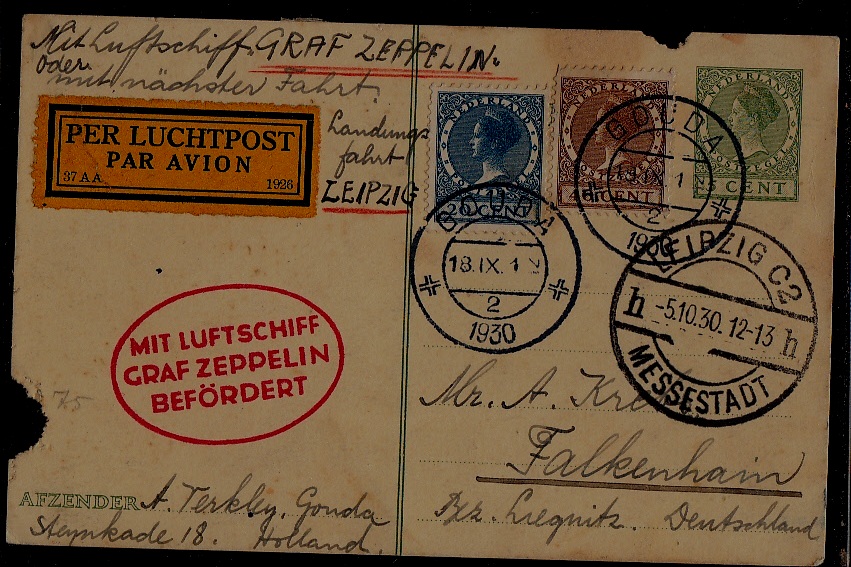 Mit Luftschiff. GRAF ZEPPELIN.
oder
mit nächster Fahrt.
Landungs
fahrt
LEIPZIG
PER LUCHTPOST
PAR AVION
37 A A 1926
NEDERLAND
CENT
NEDERLAND
CENT
NEDERLAND
POSTZEGEL
5 CENT
GOUDA
1
2
1930
GOUDA
18.IX.1
2
1930
LEIPZIG C2
h -5.10.30. 12-13 h
MESSESTADT
MIT LUFTSCHIFF
GRAF ZEPPELIN
BEFÖRDERT
75
Mr. A.
Falkenhain
Bez. Liegnitz. Deutschland
AFZENDER A. Terkley. Gouda
Steynkade 18. Holland.